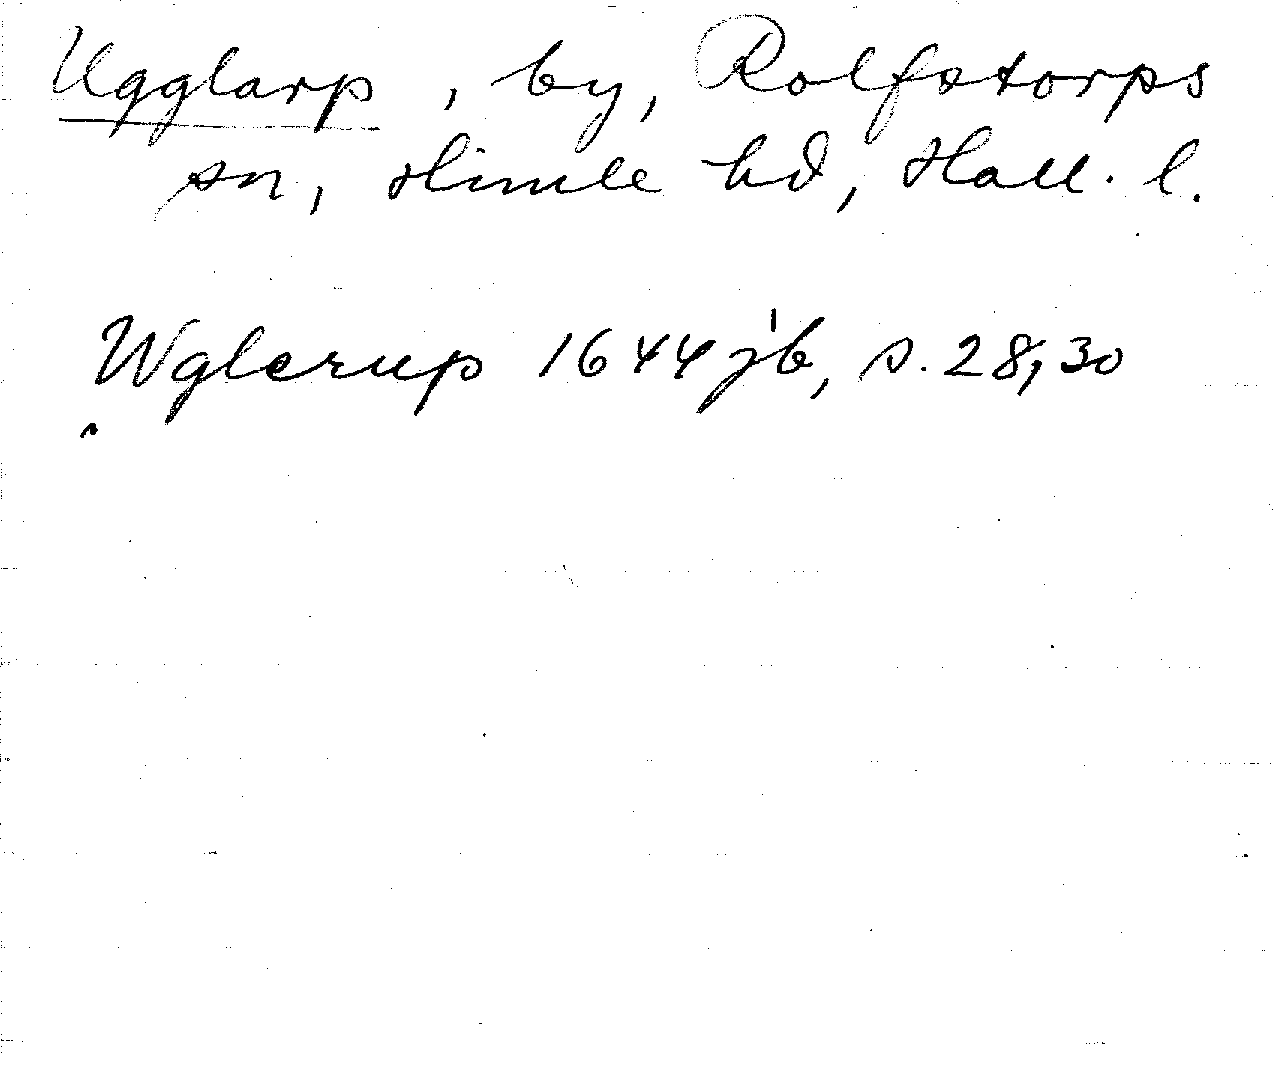 Ugglarp, by, Rolfstorps
sn, Himle hd, Hall. l.
Wglerup 1644 jb, s. 28, 30